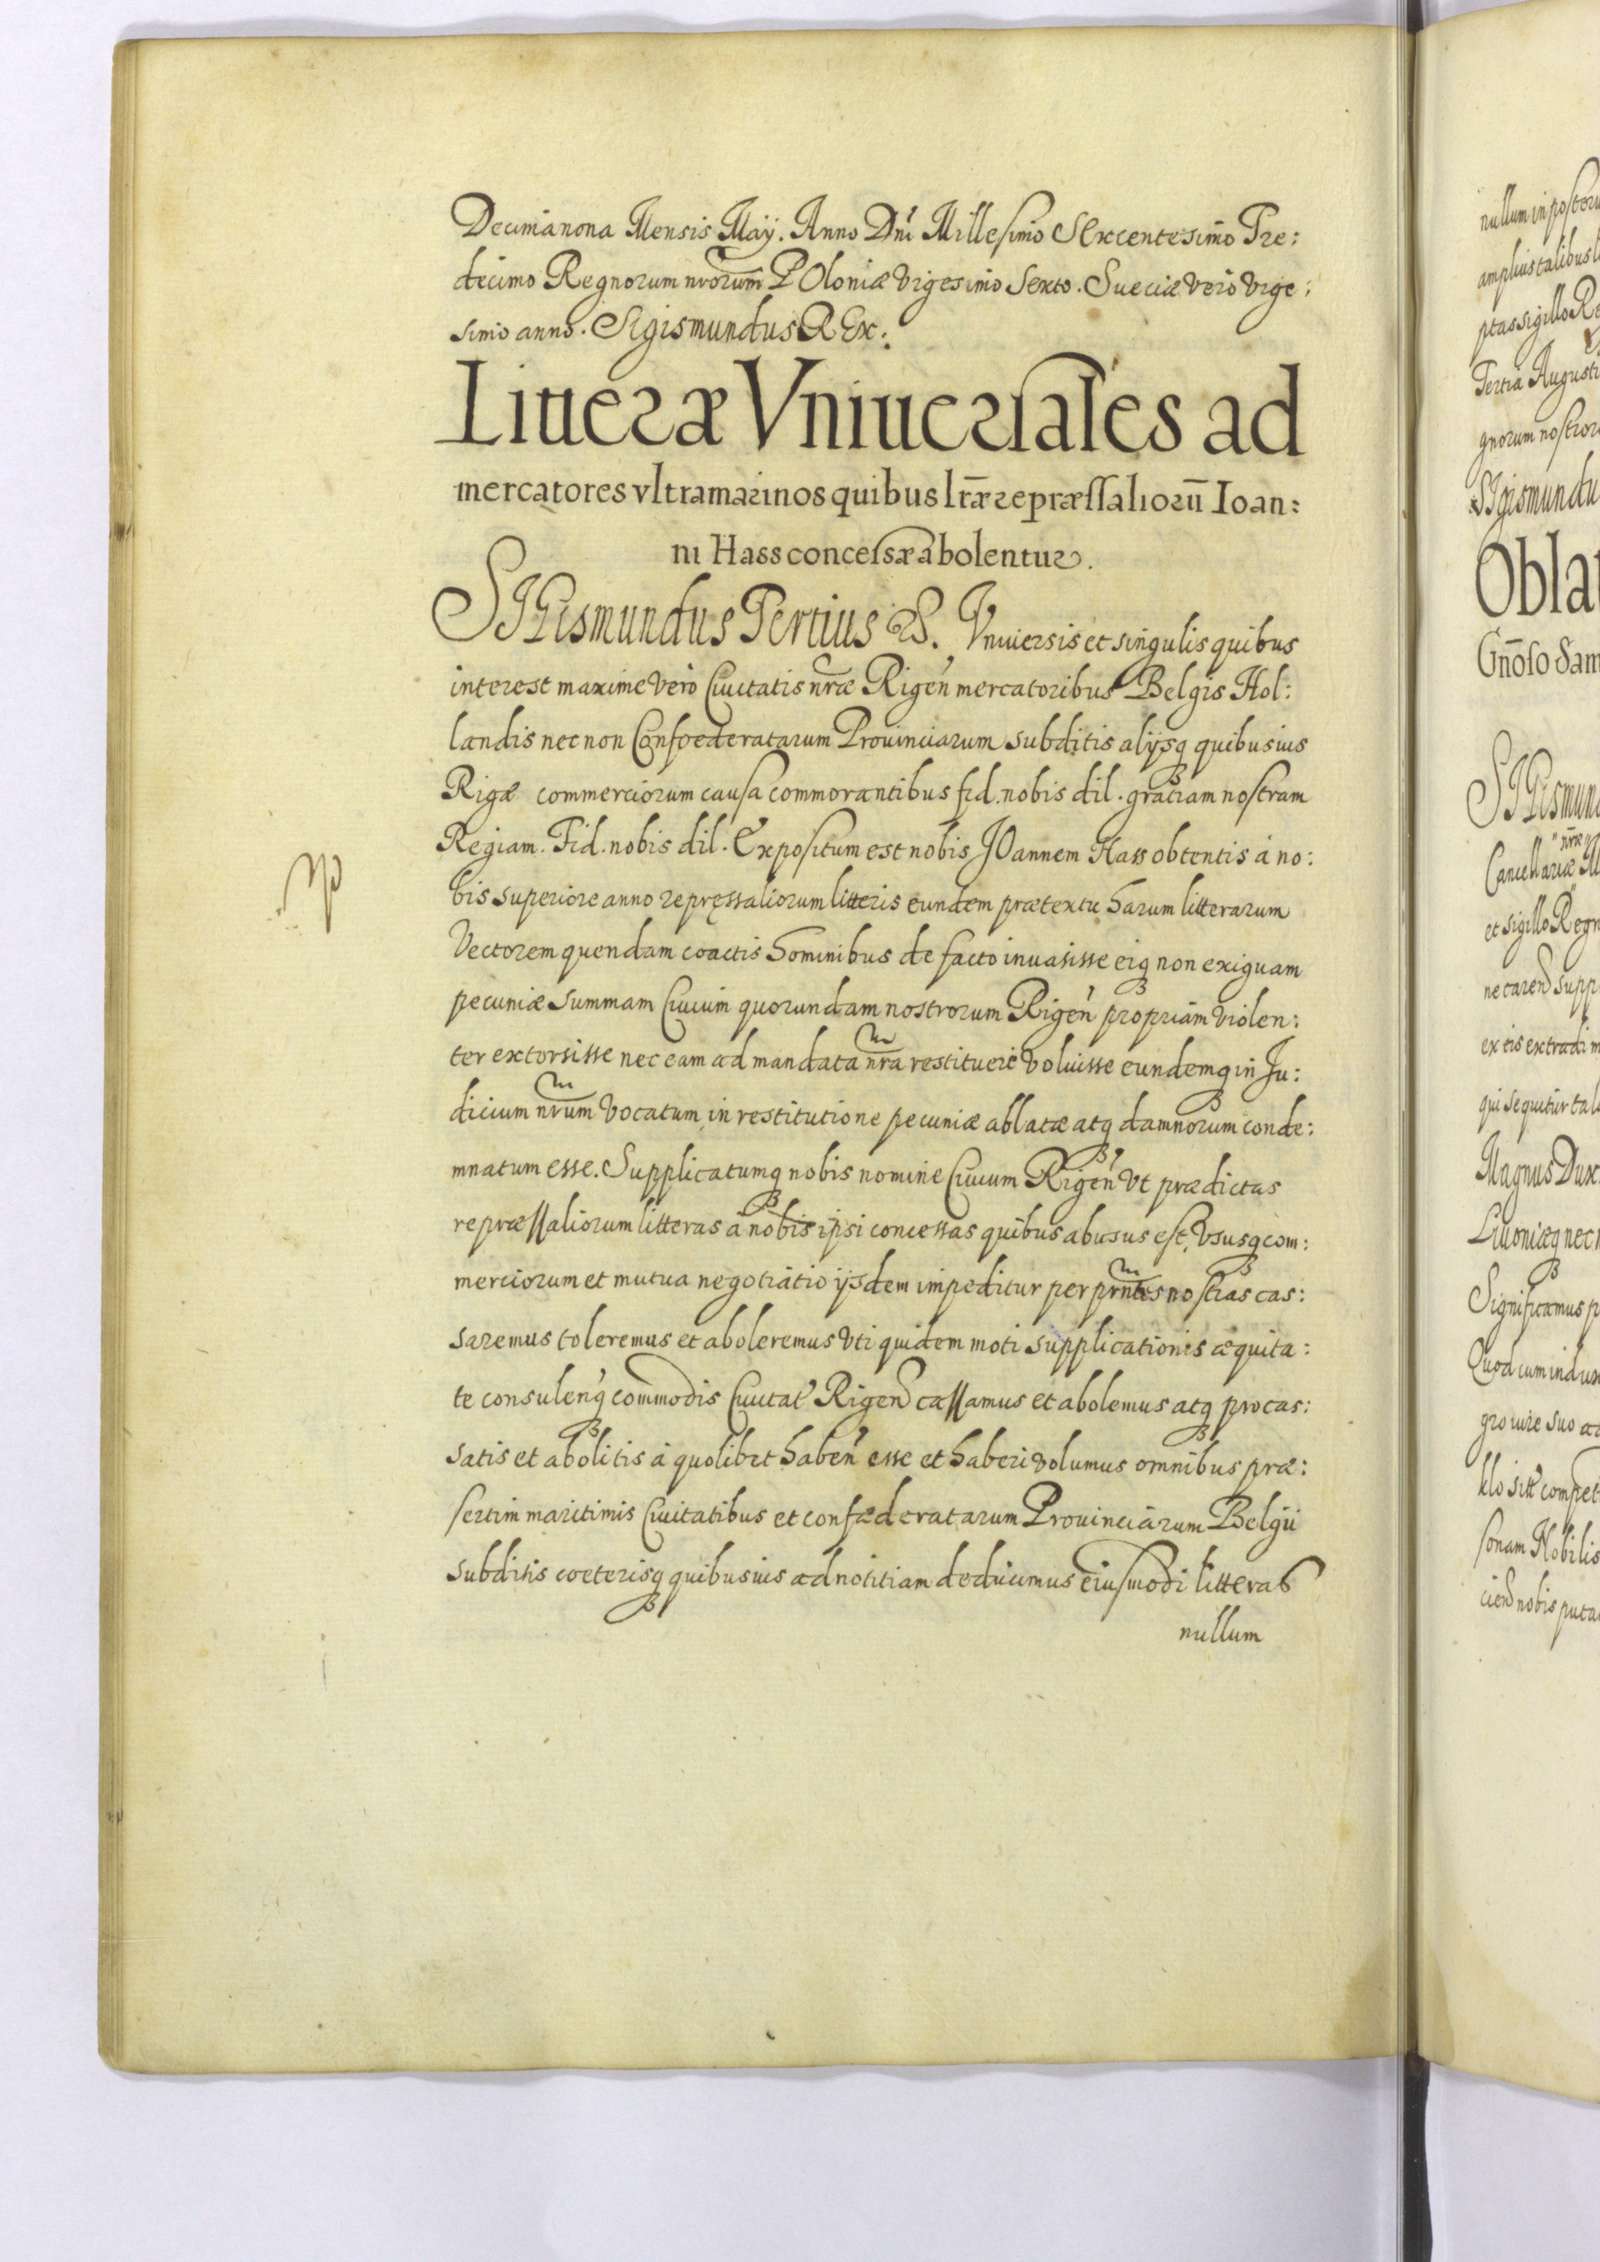 Decimanona Mensis Maÿ. Anno Dnī Millesimo Sexcentesimo Tre:
decimo Regnorum nrorum POloniæ Vigesimo Sexto. Sueciæ Vero Vige:
simo anno. Sigismundus REx:
Litteræ Vniuersales ad
mercatores vltramarinos quibus lr̄æ repræssaliorū Ioan:
ni Hass concessæ abolentur.
SIGismundus Tertius &. Vniuersis et singulis quibus
interest maxime Vero Ciuitatis nræ Rigen mercatoribus Belgis Hol:
landis nec non Confoederatarum Prouinciarum subditis alijsq quibusuis
Rigæ commerciorum causa commorantibus fid. nobis dil. gratiam nostram
Regiam. Fid. nobis dil. Expositum est nobis IOannem Hass obtentis a no:
bis superiore anno repręssaliorum litteris eundem prætextu harum litterarum
Vectorem quendam coactis hominibus de facto inuasisse eiq non exiguam
pecuniæ summam Ciuium quorundam nostrorum Rigen propriam violen:
ter extorsisse nec eam ad mandata nra restituere Voluisse eundemq in Ju:
dicium nrum Vocatum in restitutione pecuniæ ablatæ atq damnorum conde:
mnatum esse. Supplicatumq nobis nomine Ciuium Rigen Vt prædictas
repræssaliorum litteras a nobis ipsi concessas quibus abusus est, Vsusq com:
merciorum et mutua negotiatio ijsdem impeditur per prntes nostras cas:
saremus tolleremus et aboleremus Vti quidem moti supplicationis æquita:
te consulenq commodis Ciuitat Rigen cassamus et abolemus atq pro cas:
satis et abolitis a quolibet haben esse et haberi volumus omnibus præ:
sertim maritimis Ciuitatibus et confæderatarum Prouinciarum Belgii
subditis coeterisq quibusuis ad notitiam deducimus eiusmodi litteras
nullum